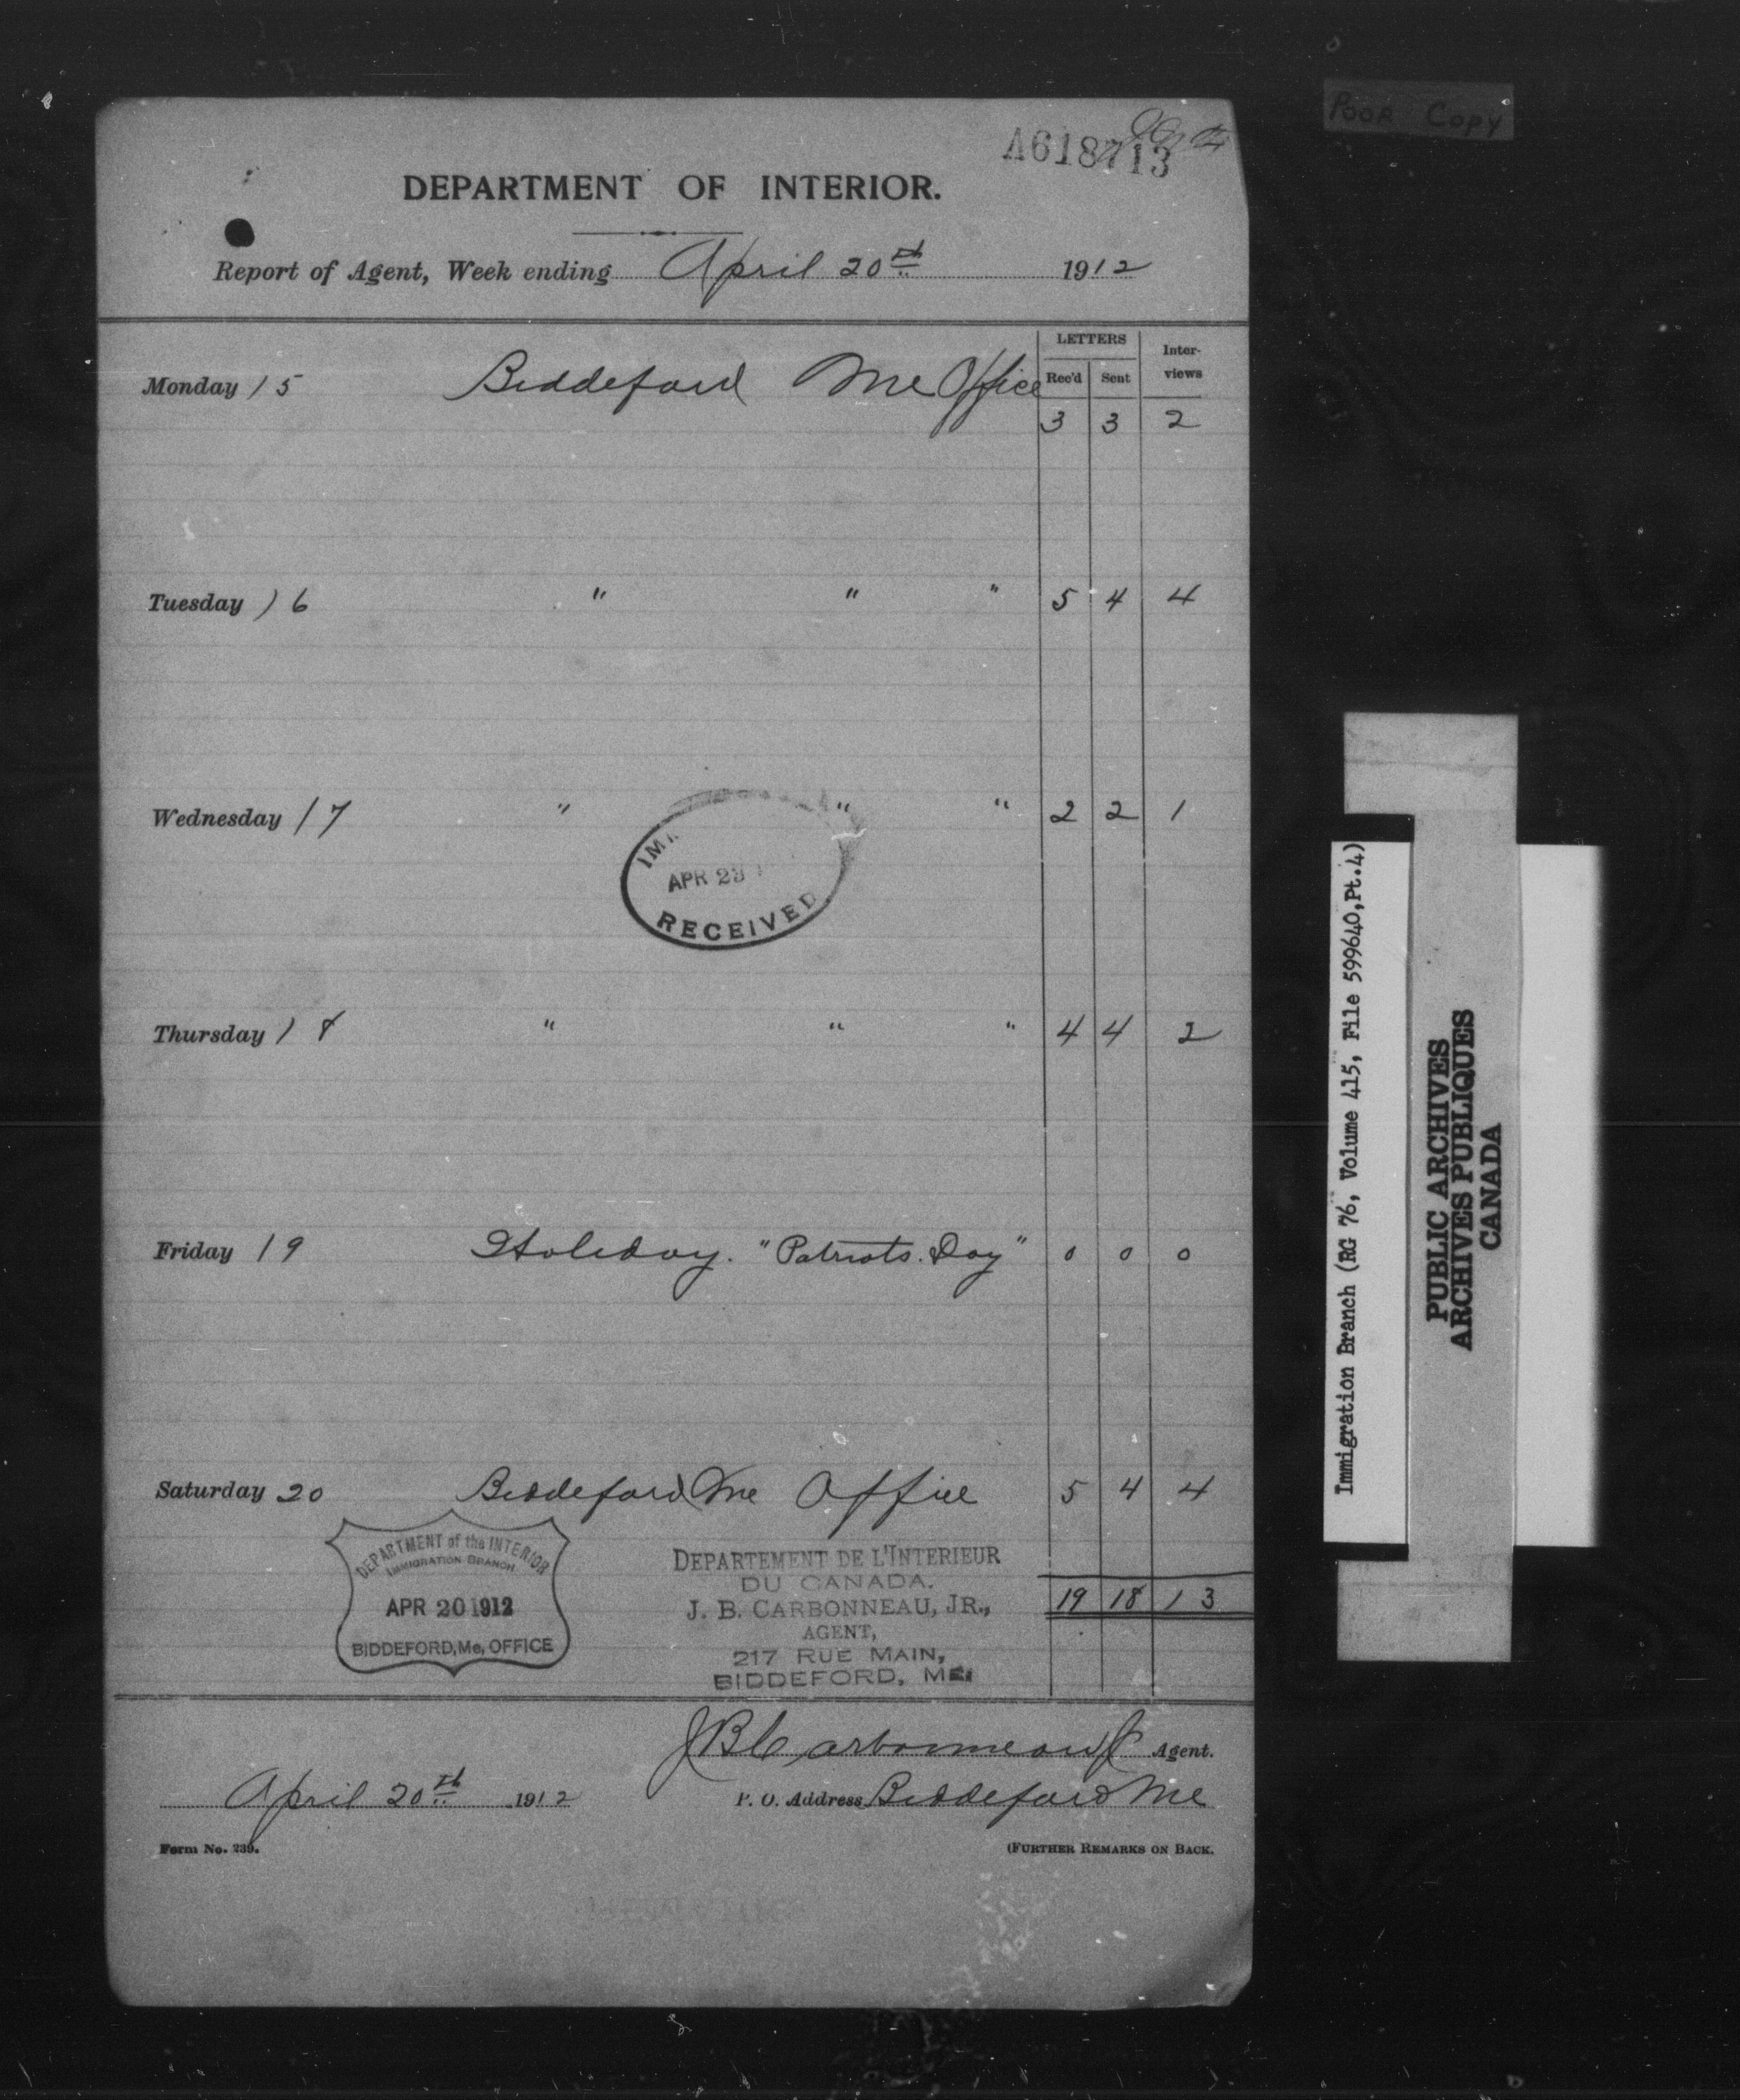 Poor Copy
A618713
DEPARTMENT OF INTERIOR.
Report of Agent, Week ending April 20th 1912
LETTERS Inter-views
Rec'd Sent
Monday 15 Biddeford Me Office 3 3 2
Tuesday 16 " " " 5 4 4
Wednesday 17 " " " 2 2 1
APR 23
RECEIVED
Thursday 18 " " " 4 4 2
Friday 19 Holiday. "Patriots. Day" 0 0 0
Saturday 20 Biddeford Me Office 5 4 4
19 18 13
DEPARTMENT of the INTERIOR
IMMIGRATION BRANCH
APR 20 1912
BIDDEFORD, Me, OFFICE
DEPARTEMENT DE L'INTERIEUR
DU CANADA.
J. B. CARBONNEAU, JR.,
AGENT,
217 RUE MAIN,
BIDDEFORD, ME.
J B Carbonneau Jr Agent.
April 20th 1912 P. O. Address Biddeford Me
Form No. 239. (FURTHER REMARKS ON BACK.
Immigration Branch (RG 76, Volume 415, File 599640,Pt.4)
PUBLIC ARCHIVES
ARCHIVES PUBLIQUES
CANADA